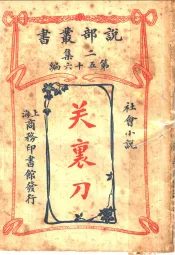 說部叢書
二集
第五十六編
社會小說
关裏刀
上海商務印書館發行